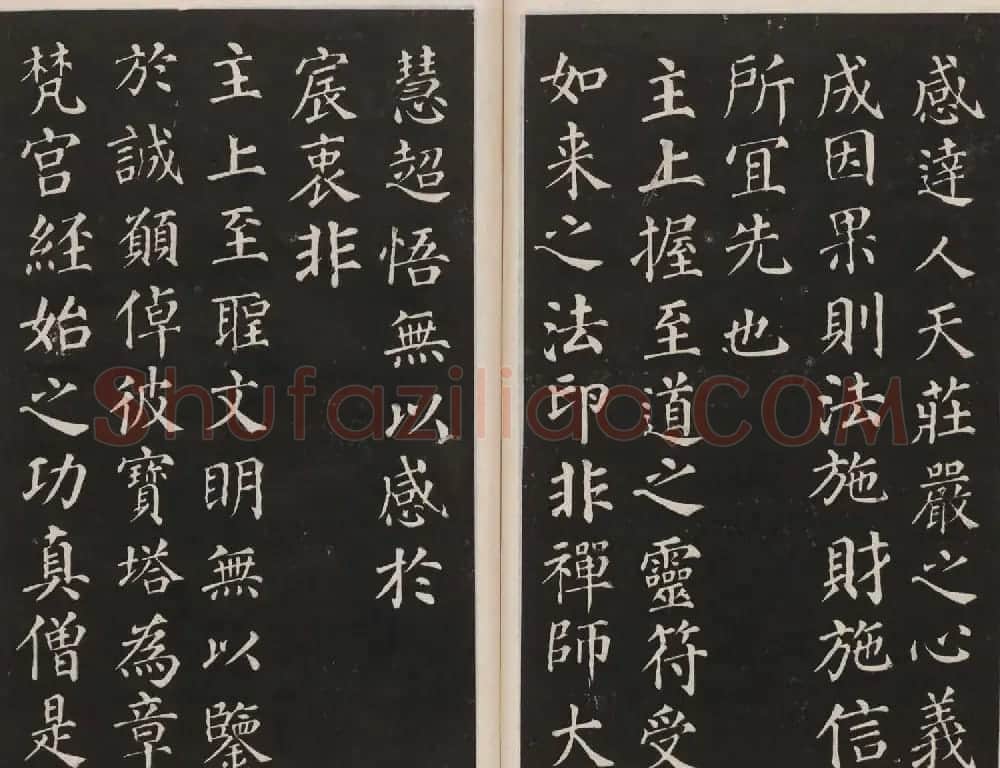 感達人天莊嚴之心義
成因果則法施財施信
所冝先也
主上握至道之靈符受
如来之法印非禪師大
慧超悟無以感於
宸衷非
主上至聖文明無以鑒
於誠願倬彼寶塔為章
梵宫経始之功真僧是
Shufaziliao.COM